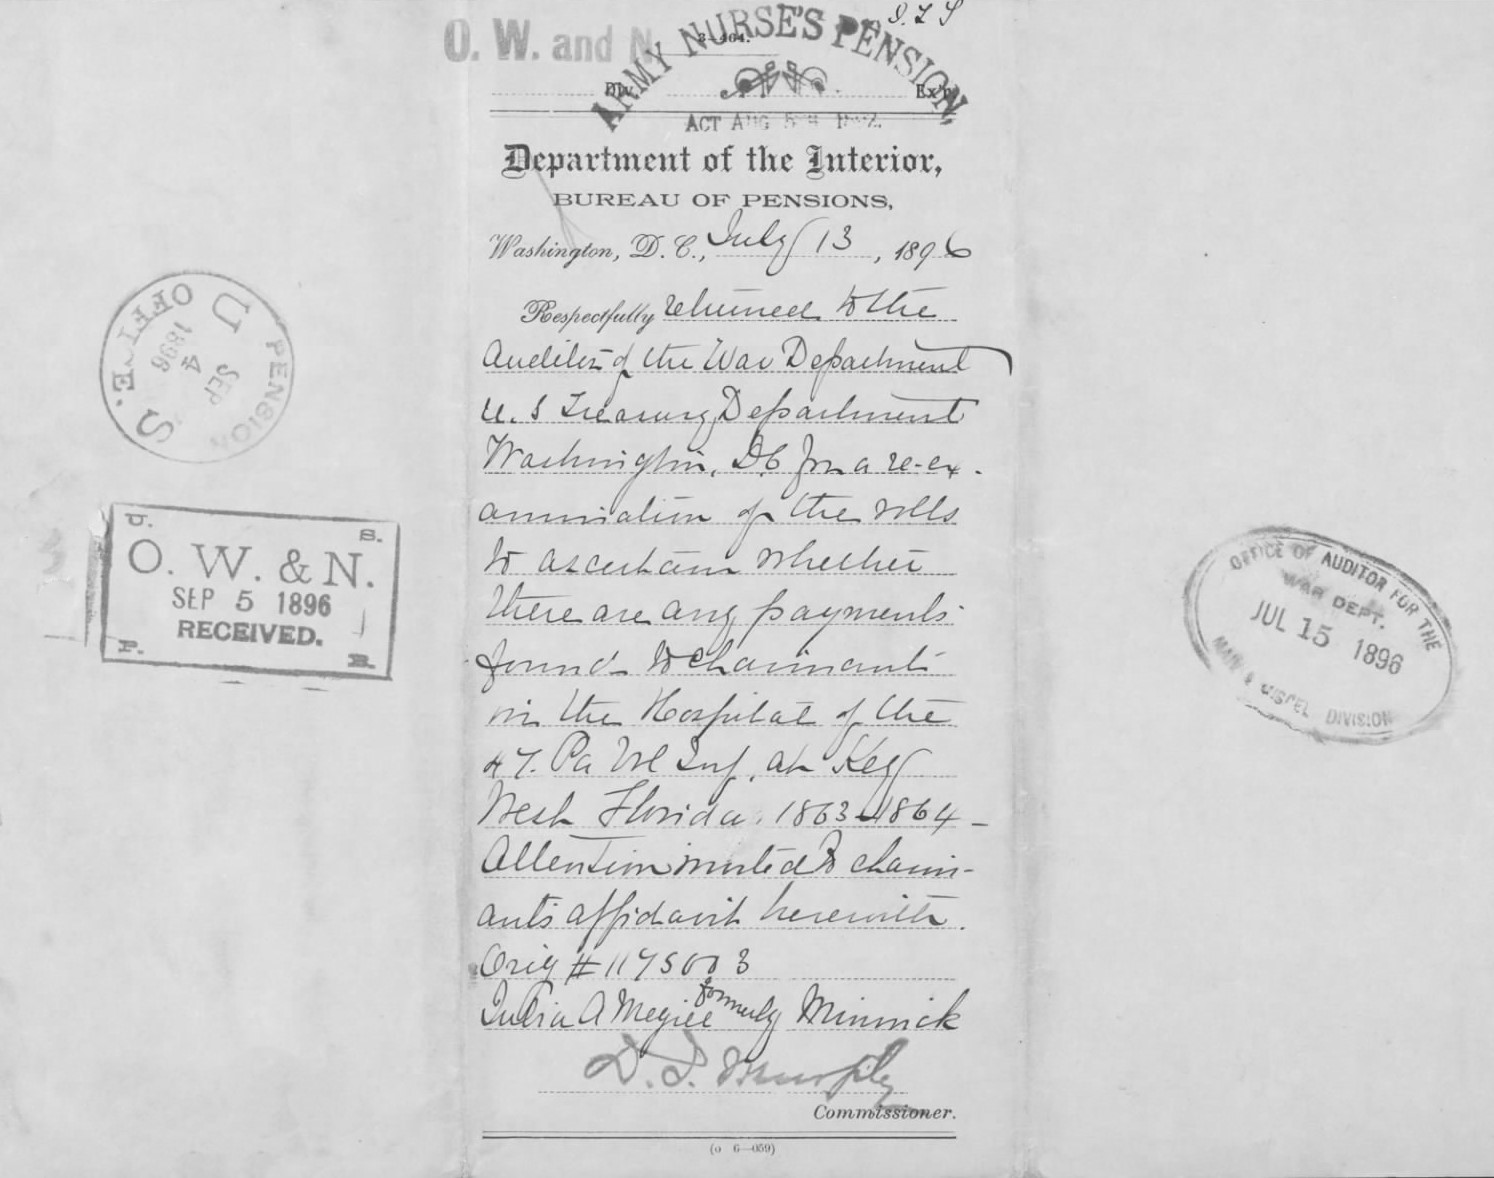 O. W. and N.
S. Z. S
3—464.
ARMY NURSE'S PENSION,
Div.
Ex'r.
ACT AUG 5TH 1892.
Department of the Interior,
BUREAU OF PENSIONS,
Washington, D. C., July 13, 1896
Respectfully returned to the
Auditor of the War Department
U. S Treasury Department
Washington, D.C. for a re-ex-
amination of the rolls
to ascertain whether
there are any payments
found to claimant
in the Hospital of the
47. Pa Vol Inf. at Key
West Florida. 1863-1864-
Attention invited to claim-
ants affidavit herewith.
Orig # 1175003
Julia A Megiee formerly Minnick
D. I. Murphy
Commissioner.
(o 6—059)
U. S. PENSION OFFICE
SEP
4
1896
U. S.
O. W. & N.
SEP 5 1896
RECEIVED.
P. B.
OFFICE OF AUDITOR FOR THE
WAR DEPT.
JUL 15 1896
MAIN & MISCEL DIVISION